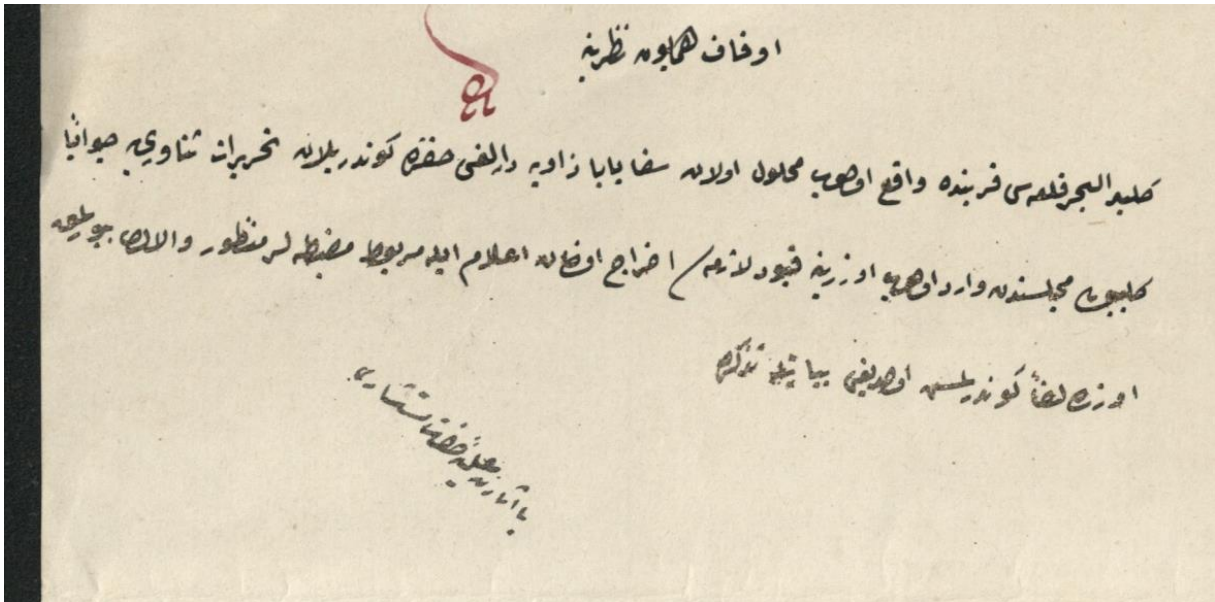 اوقاف همایون نظارتنه
کلید البحر قلعه‌سی قربنده واقع اولوب محلول اولان سفا بابا زاویه دارلغی حقنده کوندریلان تحریرات ثناوری جواباً
مجلسندن وارد اولوب اوزرینه قیود لازمه‌سی اخراج اولنان اعلام ایله مربوط مضبطه‌لر منظور والالری بیورلمق
اوزره لفاً کوندرلمش اولدیغی بیانیله تذکره